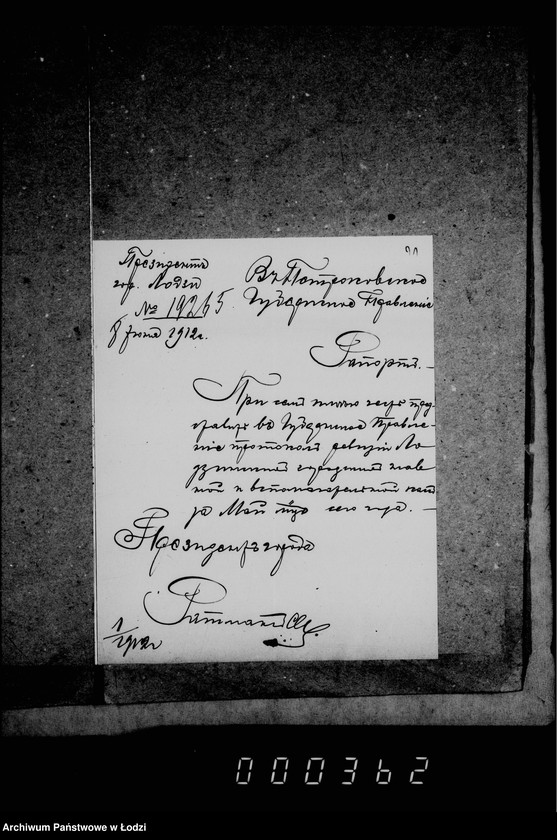 Президентъ
гор. Лодзи
№ 19265
8 Іюня 1912 г.
Въ Петроковское
Губернское Правленіе
Рапортъ. —
При семъ имѣю честь пред-
ставить въ Губернское Правле-
ніе протоколъ ревизіи Ло-
дзинской городской глав-
ной и вспомогательной кас-
за Май мѣс. сего года. —
Президентъ города
1912 г.
000362
Archiwum Państwowe w Łodzi